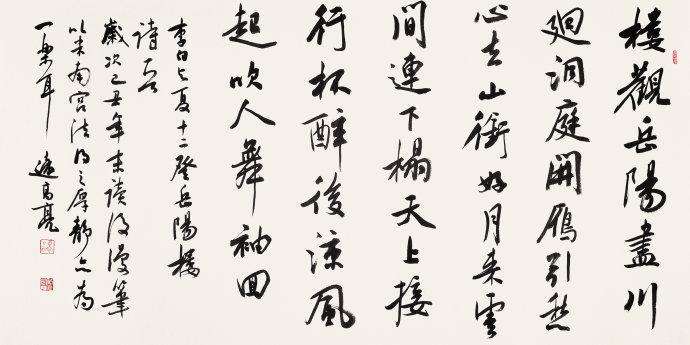 楼觀岳陽盡川
廻洞庭開雁引愁
心去山銜好月来雲
間連下榻天上接
行杯醉後涼風
起吹人舞袖回
李白与夏十二登岳陽樓
詩一首
歲次己丑年末讀後漫筆
以米南宮法得之厚静亦為
一樂耳
遠亮